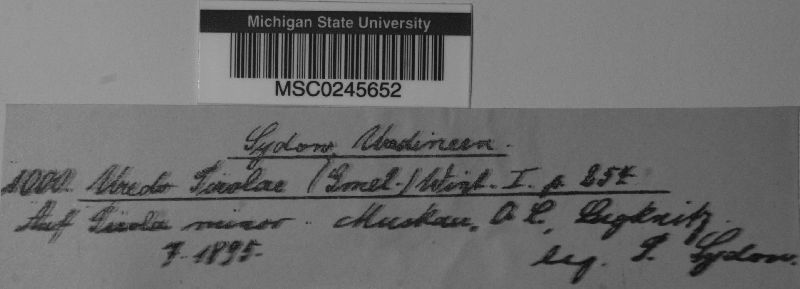 Michigan State University
MSC0245652
Sydow, Uredineen.
1000. Uredo Pirolae (Gmel.) Wint. I. p. 254
Auf Pirola minor. Muskau, O. L., Lugknitz.
7. 1895. leg. P. Sydow.